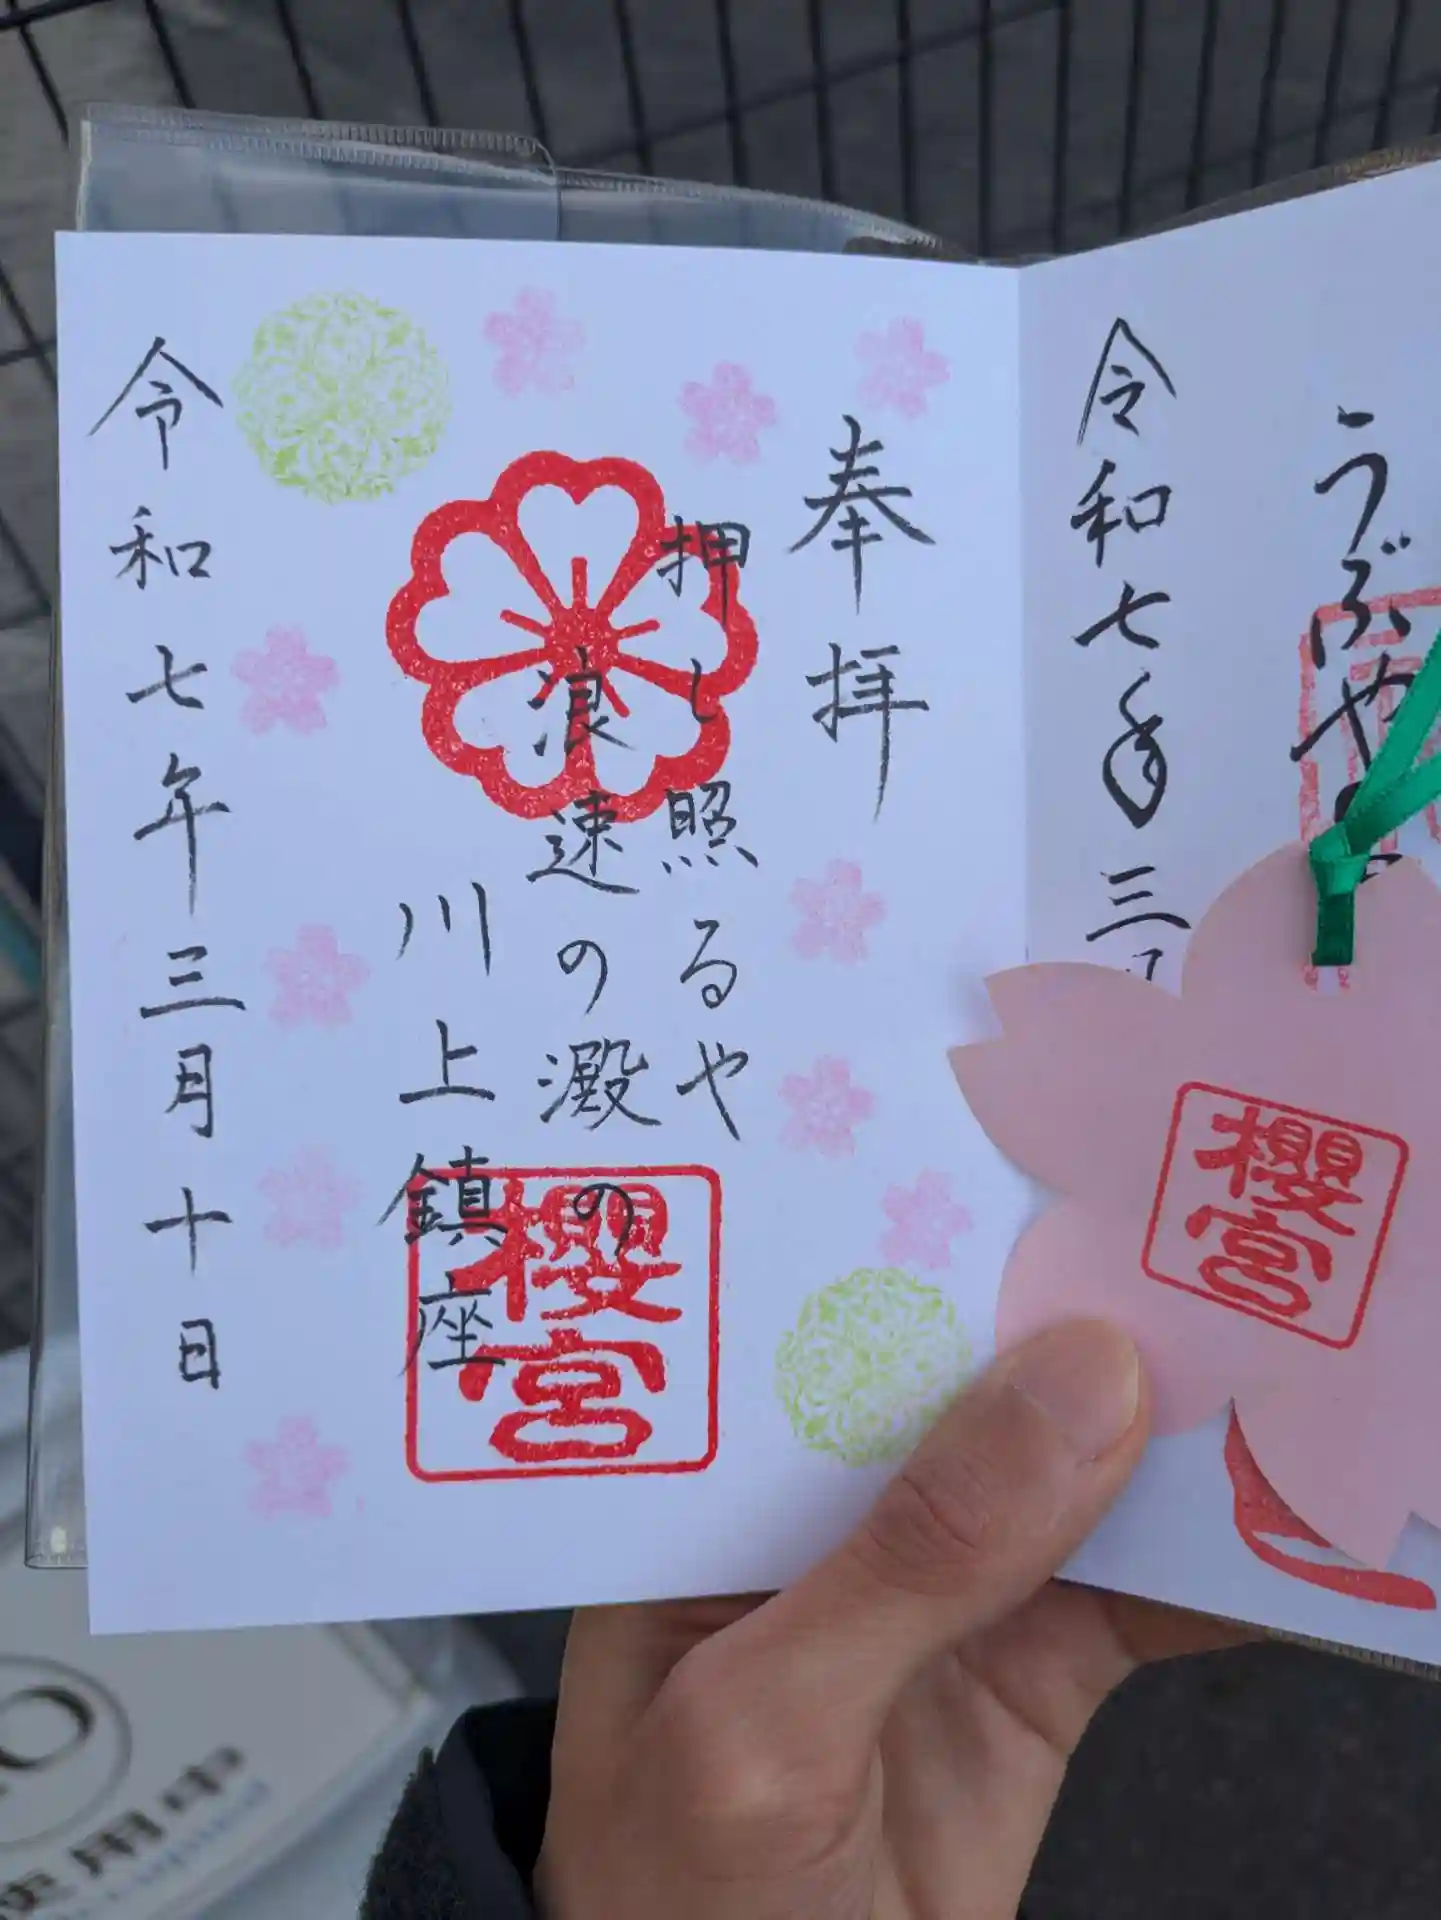 うぶや
令和七年三
櫻宮
奉拝
押し照るや
浪速の澱の
川上鎮座
櫻宮
令和七年三月十日
使用中